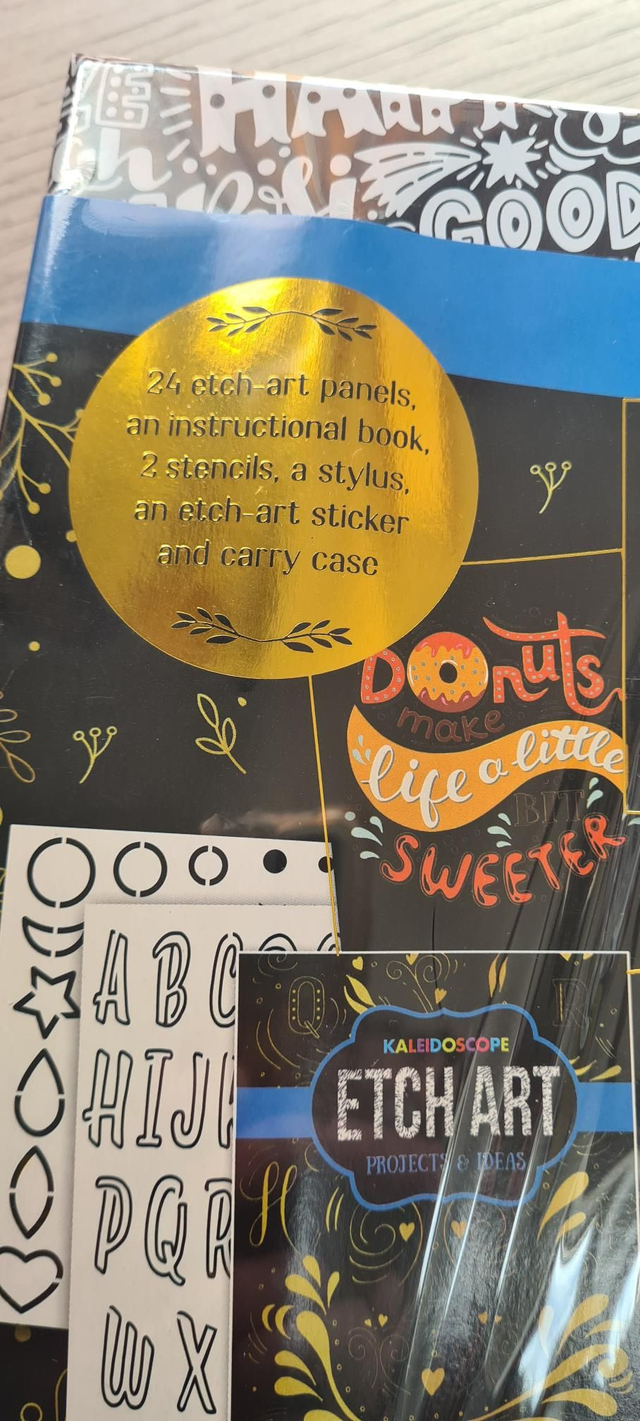 GOOD
24 etch-art panels,
an instructional book,
2 stencils, a stylus,
an etch-art sticker
and carry case
Donuts
make
life a little
BIT
SWEETER
A B C
H I J
P Q R
W X
Q
R
KALEIDOSCOPE
ETCH ART
PROJECTS & IDEAS
H